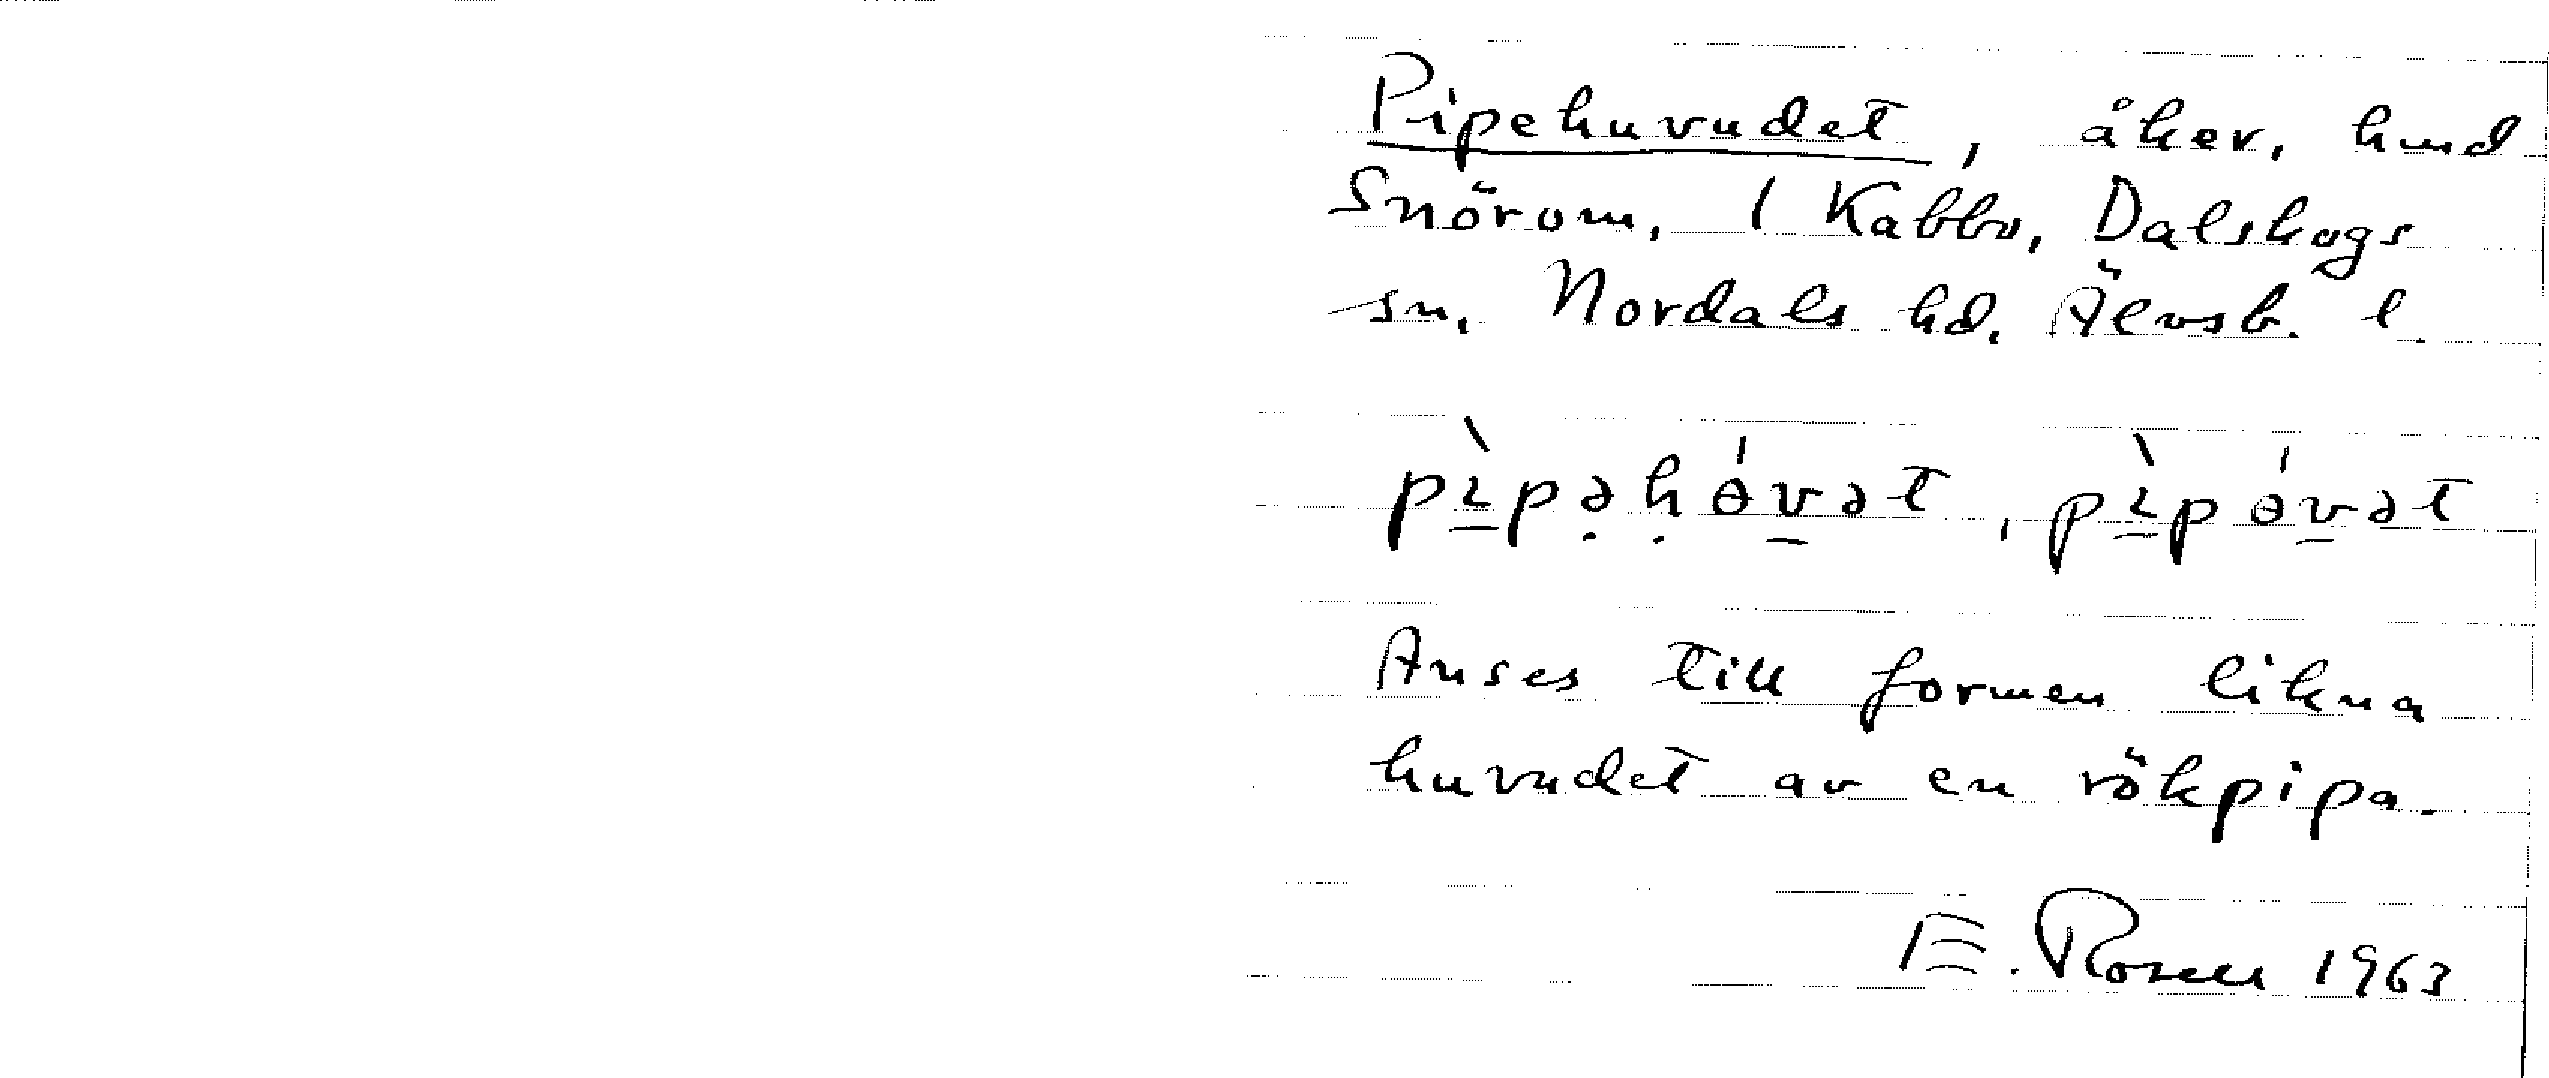 Pipehuvudet, åker, hmd
Snörom, 1 Kabbo, Dalskogs
sn, Nordals hd, Älvsb. l.
pìpəhə́vət, pìpə́vət
Anses till formen likna
huvudet av en rökpipa.
E. Rosell 1963